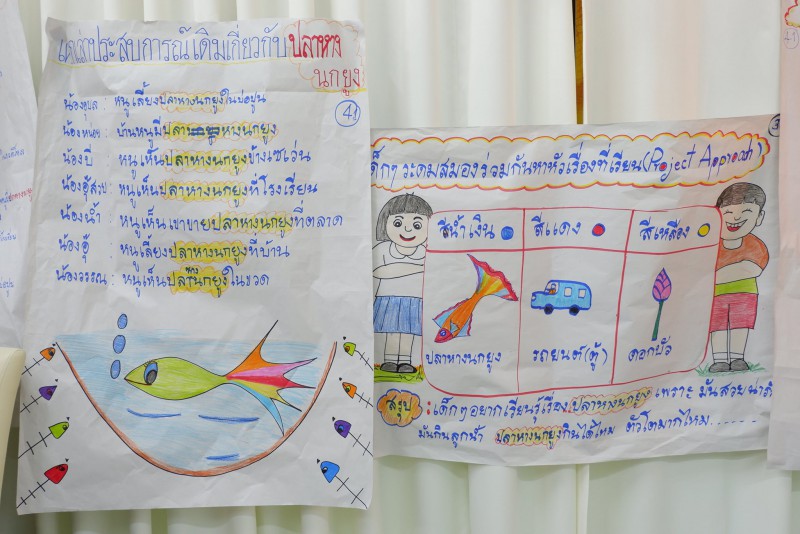 แลกเล่าประสบการณ์เดิมเกี่ยวกับปลาหาง
นกยูง
41
น้องอุบล : หนูเลี้ยงปลาหางนกยูงในบ่อปูน
บ้านหนูมีปลาหางนกยูง
น้องบี : หนูเห็นปลาหางนกยูงข้างเซเว่น
หนูเห็นปลาหางนกยูงที่โรงเรียน
น้องน้ำ : หนูเห็นเขาขายปลาหางนกยูงที่ตลาด
น้องอุ้ : หนูเลี้ยงปลาหางนกยูงที่บ้าน
น้องวรรณ : หนูเห็นปลาหางนกยูงในขวด
เด็กๆ ระดมสมองร่วมกันหาหัวเรื่องที่เรียน (Project Approach)
สีน้ำเงิน สีแดง สีเหลือง
ปลาหางนกยูง รถยนต์(ตู้) ดอกบัว
สรุป : เด็กๆ อยากเรียนรู้เรื่องปลาหางนกยูง เพราะ มันสวยน่า
มันกินลูกน้ำ ปลาหางนกยูงกินได้ไหม ตัวโตมากไหม......
41